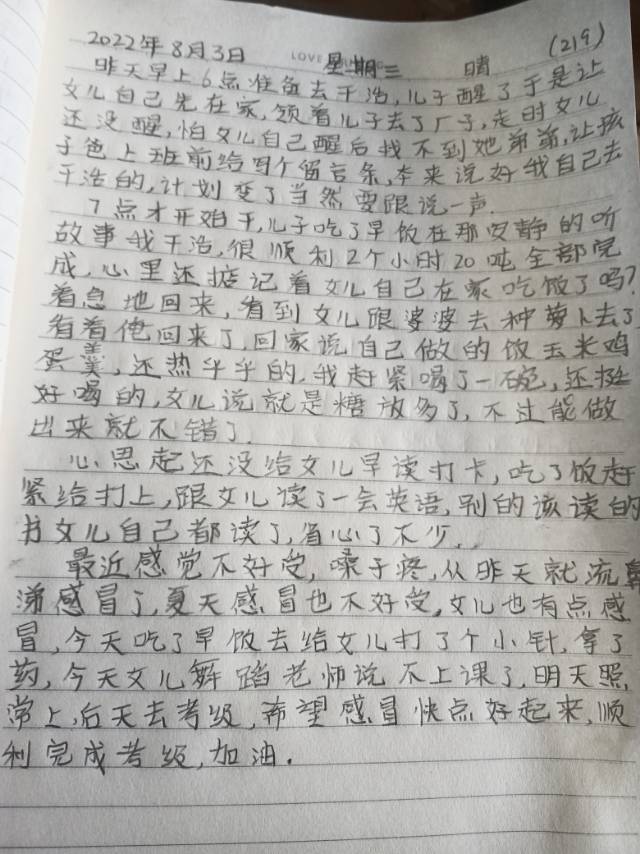 2022年8月3日 星期三 晴 (219)
LOVE
昨天早上6点准备去干活,儿子醒了于是让
女儿自己先在家,领着儿子去了厂子,走时女儿
还没醒,怕女儿自己醒后找不到她弟弟,让孩
子爸上班前给写个留言条,本来说好我自己去
干活的,计划变了当然要跟说一声.
7点才开始干,儿子吃了早饭在那安静的听
故事我干活,很顺利2个小时20吨全部完
成,心里还掂记着女儿自己在家吃饭了吗?
着急地回来,看到女儿跟婆婆去种萝卜去了
看着他回来了,回家说自己做的饭玉米鸡
蛋羹,还热乎乎的,我赶紧喝了一碗,还挺
好喝的,女儿说就是糖放多了,不过能做
出来就不错了.
心思起还没给女儿早读打卡,吃了饭赶
紧给打上,跟女儿读了一会英语,别的该读的
书女儿自己都读了,省心了不少..
最近感觉不好受,嗓子疼,从昨天就流鼻
涕感冒了,夏天感冒也不好受,女儿也有点感
冒,今天吃了早饭去给女儿打了个小针,拿了
药,今天女儿舞蹈老师说不上课了,明天照
常上,后天去考级,希望感冒快点好起来,顺
利完成考级,加油.